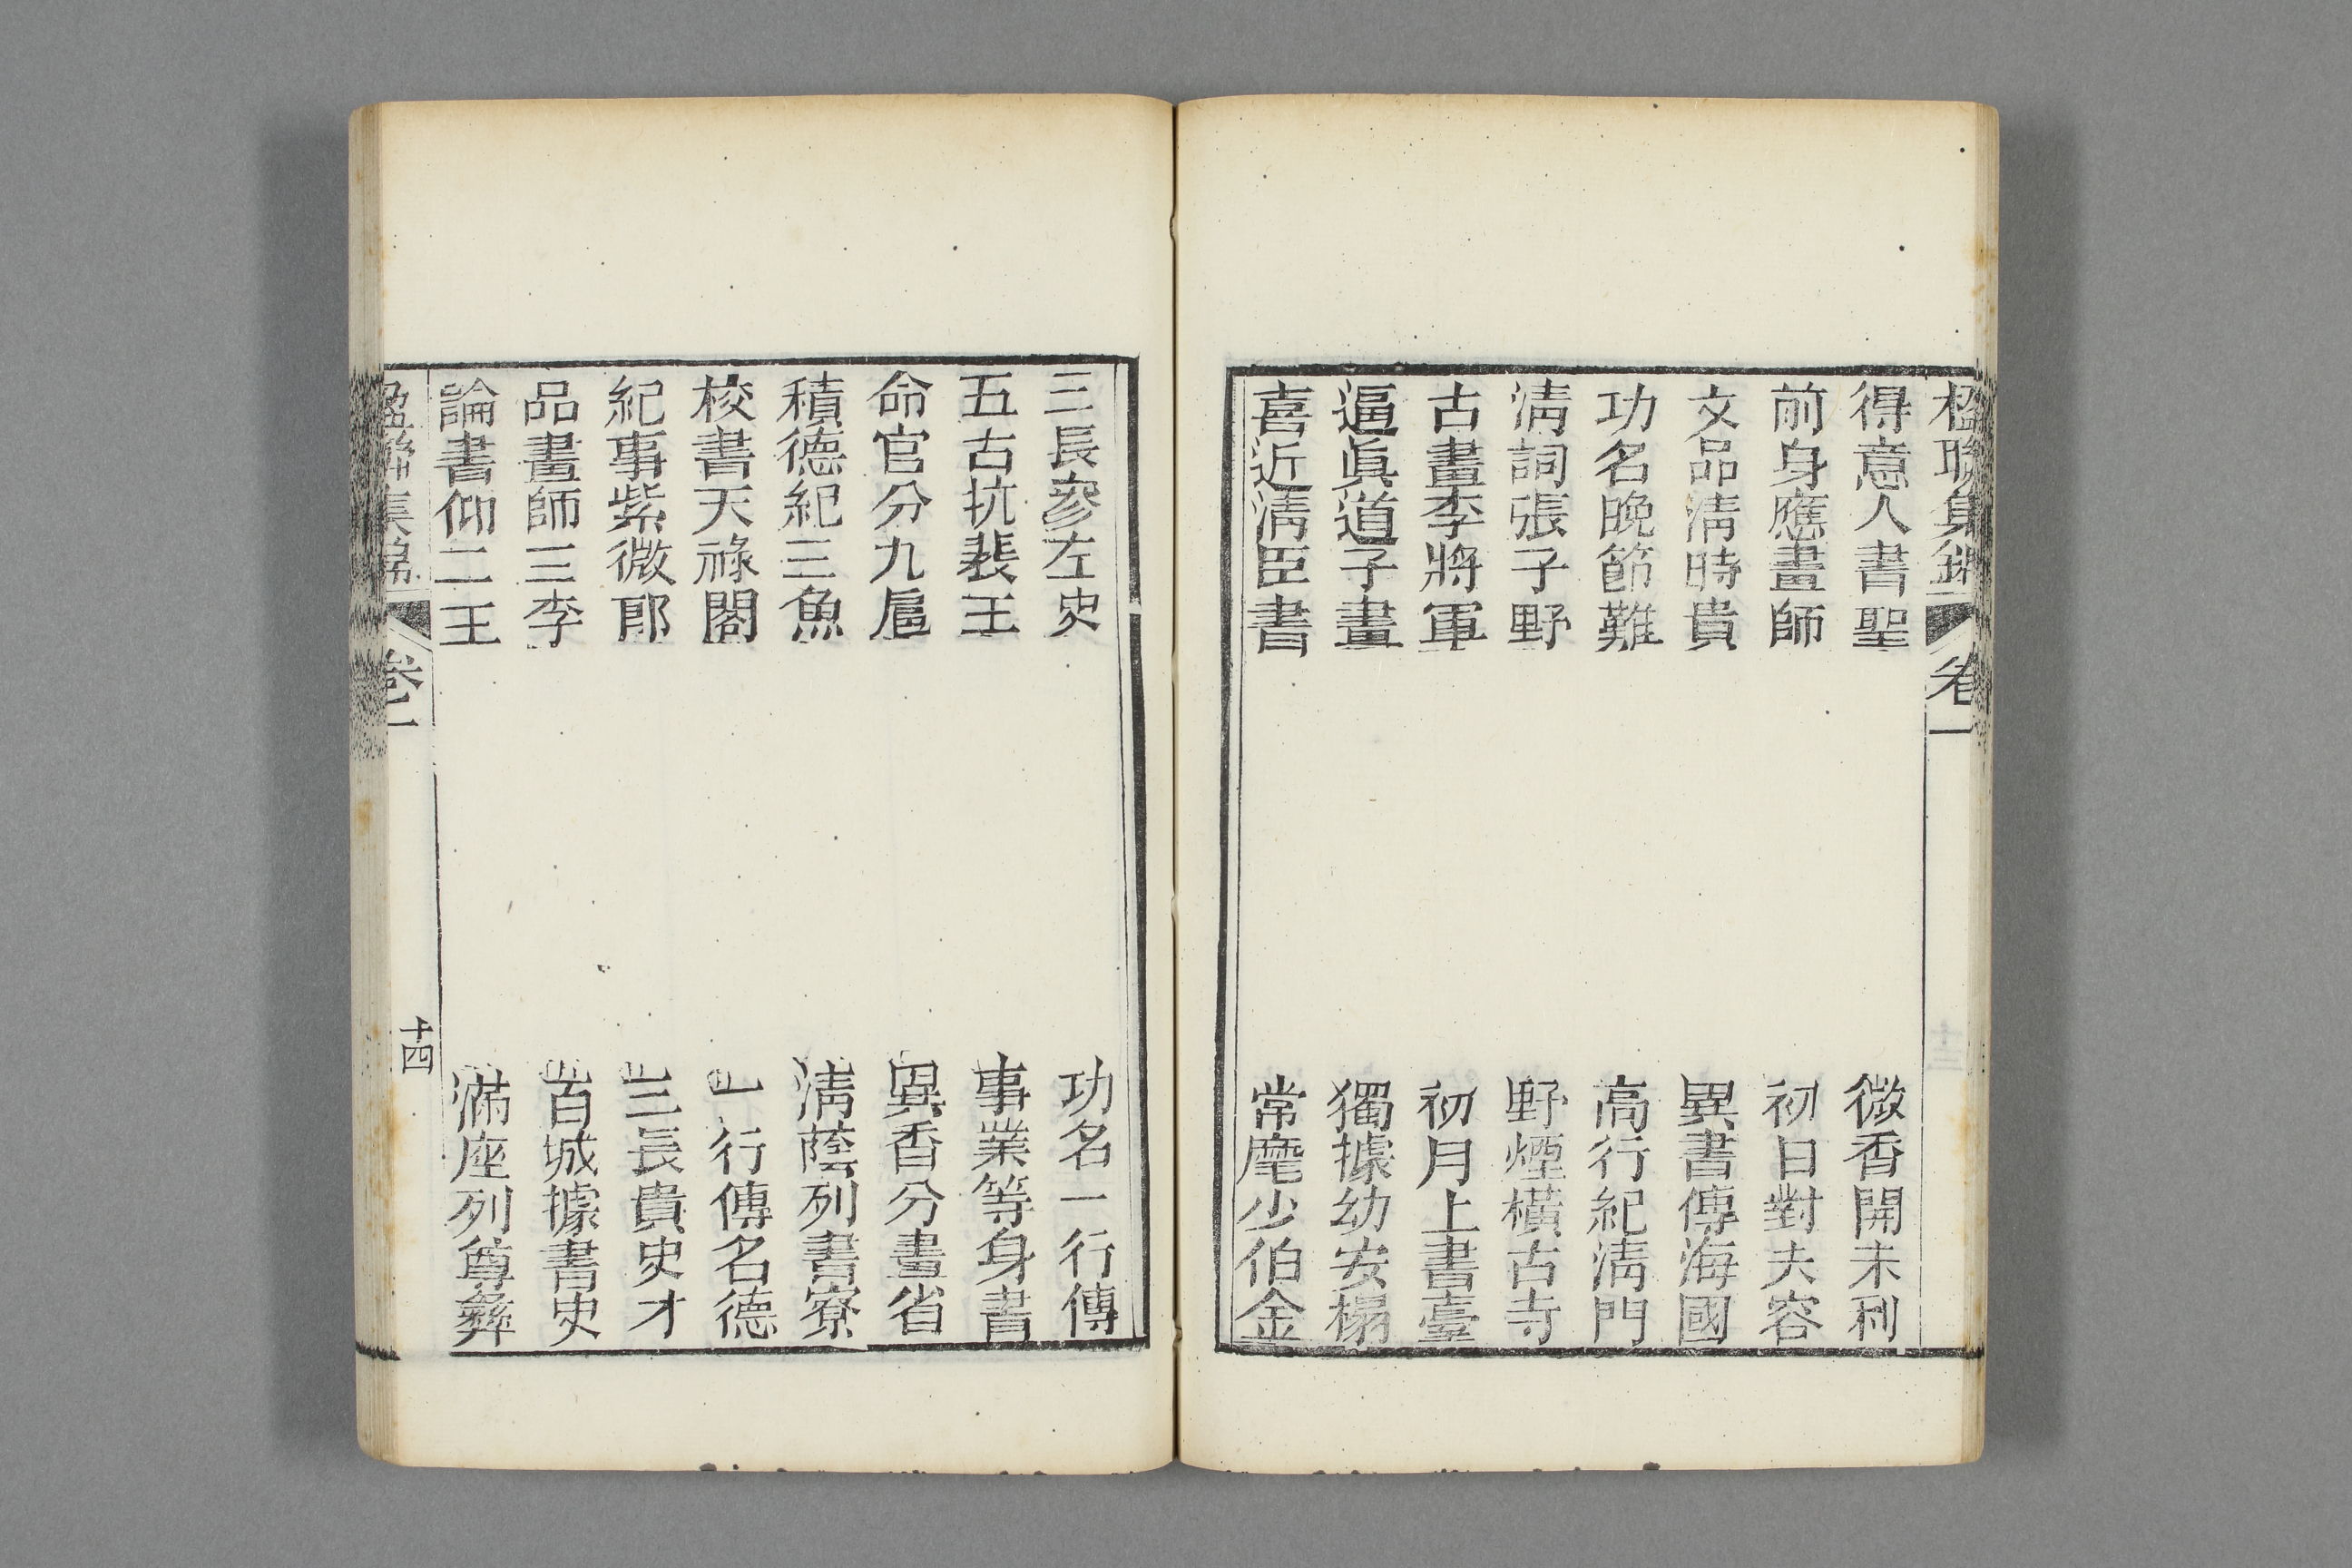 楹聯集錦 卷一
得意人書聖 微香開未利
前身應畫師 初日對夫容
文品清時貴 異書傳海國
功名晚節難 高行紀清門
清詞張子野 野煙橫古寺
古畫李將軍 初月上書臺
逼眞道子畫 獨據幼安榻
喜近清臣書 常麾少伯金
三長參左史 功名一行傳
五古抗裴王 事業等身書
命官分九扈 異香分畫省
積德紀三魚 清蔭列書寮
校書天祿閣 一行傳名德
紀事紫微郎 三長貴史才
品畫師三李 百城據書史
論書仰二王 滿座列尊彝
楹聯集錦 卷一 十四